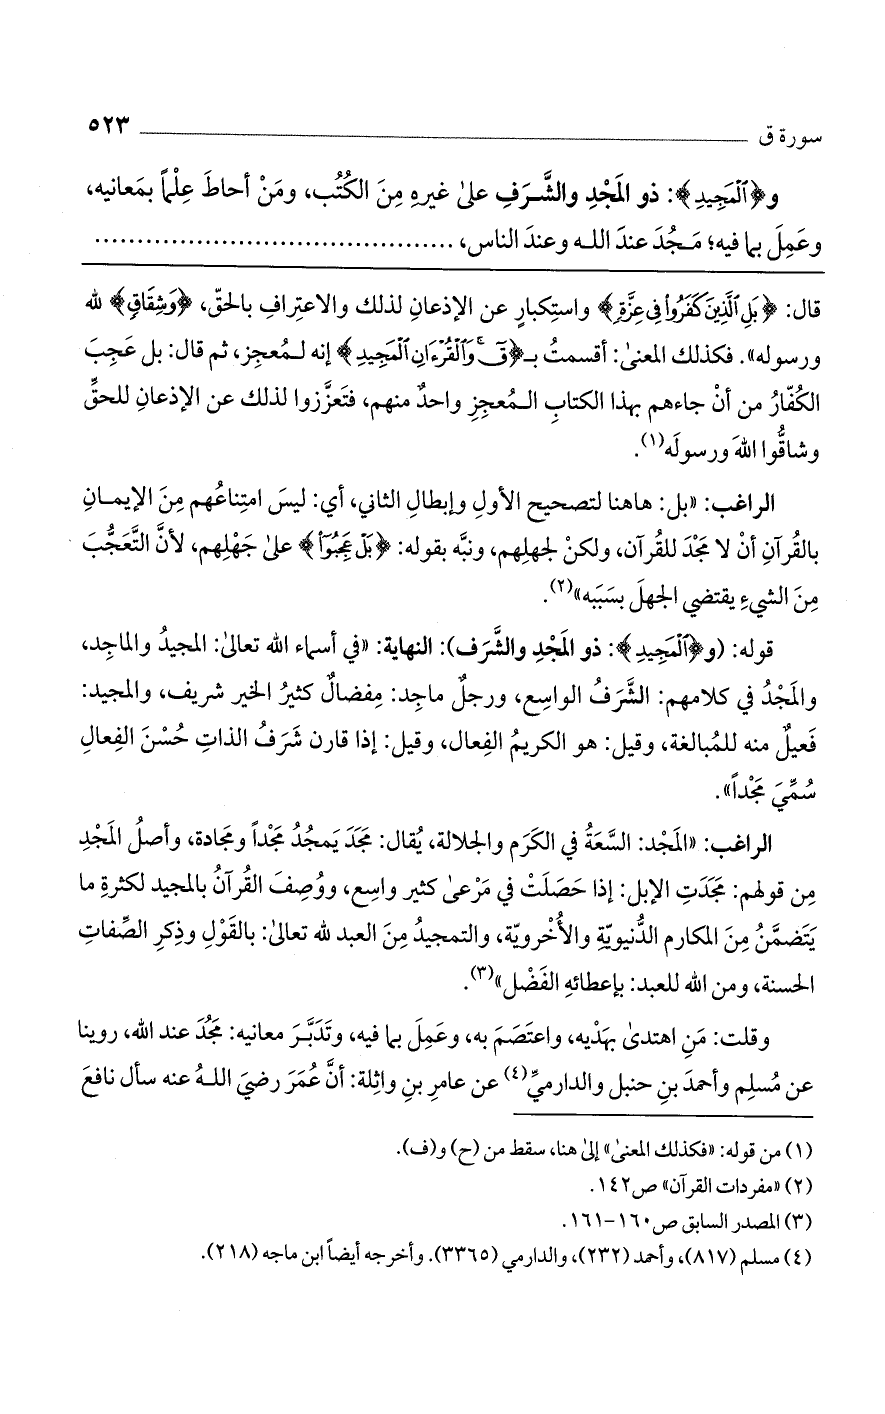 سورة ق ــــــــــــــــــــ ٥٢٣
و﴿ٱلْمَجِيدِ﴾: ذو المَجْدِ والشَّرَفِ علىٰ غيرِهِ مِنَ الكُتُب، ومَنْ أحاطَ عِلْماً بمَعانيه،
وعَمِلَ بما فيه؛ مَـجُدَ عندَ اللـه وعندَ الناس، ..........................................
قال: ﴿بَلِ ٱلَّذِينَ كَفَرُوا۟ فِى عِزَّةٍ﴾ واستِكبارٍ عن الإذعانِ لذلك والاعتِرافِ بالحقّ، ﴿وَشِقَاقٍ﴾ لله
ورسوله». فكذلك المعنىٰ: أقسمتُ بـ﴿قٓ ۚ وَٱلْقُرْءَانِ ٱلْمَجِيدِ﴾ إنه لـمُعجِز، ثم قال: بل عَجِبَ
الكُفّارُ من أنْ جاءهم بهذا الكتابِ الـمُعجِزِ واحدٌ منهم، فتَعزَّزوا لذلك عن الإذعانِ للحقِّ
وشاقُّوا اللهَ ورسولَه(١).
الراغب: «بل: هاهنا لتصحيح الأولِ وإبطالِ الثاني، أي: ليسَ امتِناعُهم مِنَ الإيمـانِ
بالقُرآنِ أنْ لا مَجْدَ للقُرآن، ولكنْ لجهلِهم، ونبَّه بقوله: ﴿بَلْ عَجِبُوٓا۟﴾ علىٰ جَهْلِهم، لأنَّ التَّعَجُّبَ
مِنَ الشيءِ يقتضي الجهلَ بسَبَبِه»(٢).
قوله: (و﴿ٱلْمَجِيدِ﴾: ذو المَجْدِ والشَّرَف): النهاية: «في أسماء الله تعالىٰ: المجيدُ والماجِد،
والمَجْدُ في كلامهم: الشَّرَفُ الواسِع، ورجلٌ ماجِد: مِفضالٌ كثيرُ الخير شريف، والمجيد:
فَعيلٌ منه للمُبالغة، وقيل: هو الكريمُ الفِعال، وقيل: إذا قارن شَرَفُ الذاتِ حُسْنَ الفِعالِ
سُمِّيَ مَجْداً».
الراغب: «المَجْد: السَّعَةُ في الكَرَم والجلالة، يُقال: مَجَدَ يَمجُدُ مَجْداً ومَجادة، وأصلُ المَجْدِ
مِن قولهم: مَجَدَتِ الإبل: إذا حَصَلَتْ في مَرْعىٰ كثير واسِع، ووُصِفَ القُرآنُ بالمجيد لكثرةِ ما
يَتَضمَّنُ مِنَ المكارم الدُّنيويّةِ والأُخْرويّة، والتمجيدُ مِنَ العبد لله تعالىٰ: بالقَوْلِ وذِكرِ الصِّفاتِ
الحسنة، ومن الله للعبد: بإعطائهِ الفَضْل»(٣).
وقلت: مَنِ اهتدىٰ بهَدْيِه، واعتَصَمَ به، وعَمِلَ بما فيه، وتَدَبَّـرَ معانيه: مَجُدَ عند الله، روينا
عن مُسلِم وأحمدَ بنِ حنبل والدارميِّ(٤) عن عامرِ بنِ واثِلة: أنَّ عُمَرَ رضيَ اللـهُ عنه سأل نافعَ
(١) من قوله: «فكذلك المعنىٰ» إلىٰ هنا، سقط من (ح) و(ف).
(٢) «مفردات القرآن» ص١٤٢.
(٣) المصدر السابق ص١٦٠-١٦١.
(٤) مسلم (٨١٧)، وأحمد (٢٣٢)، والدارمي (٣٣٦٥). وأخرجه أيضاً ابن ماجه (٢١٨).